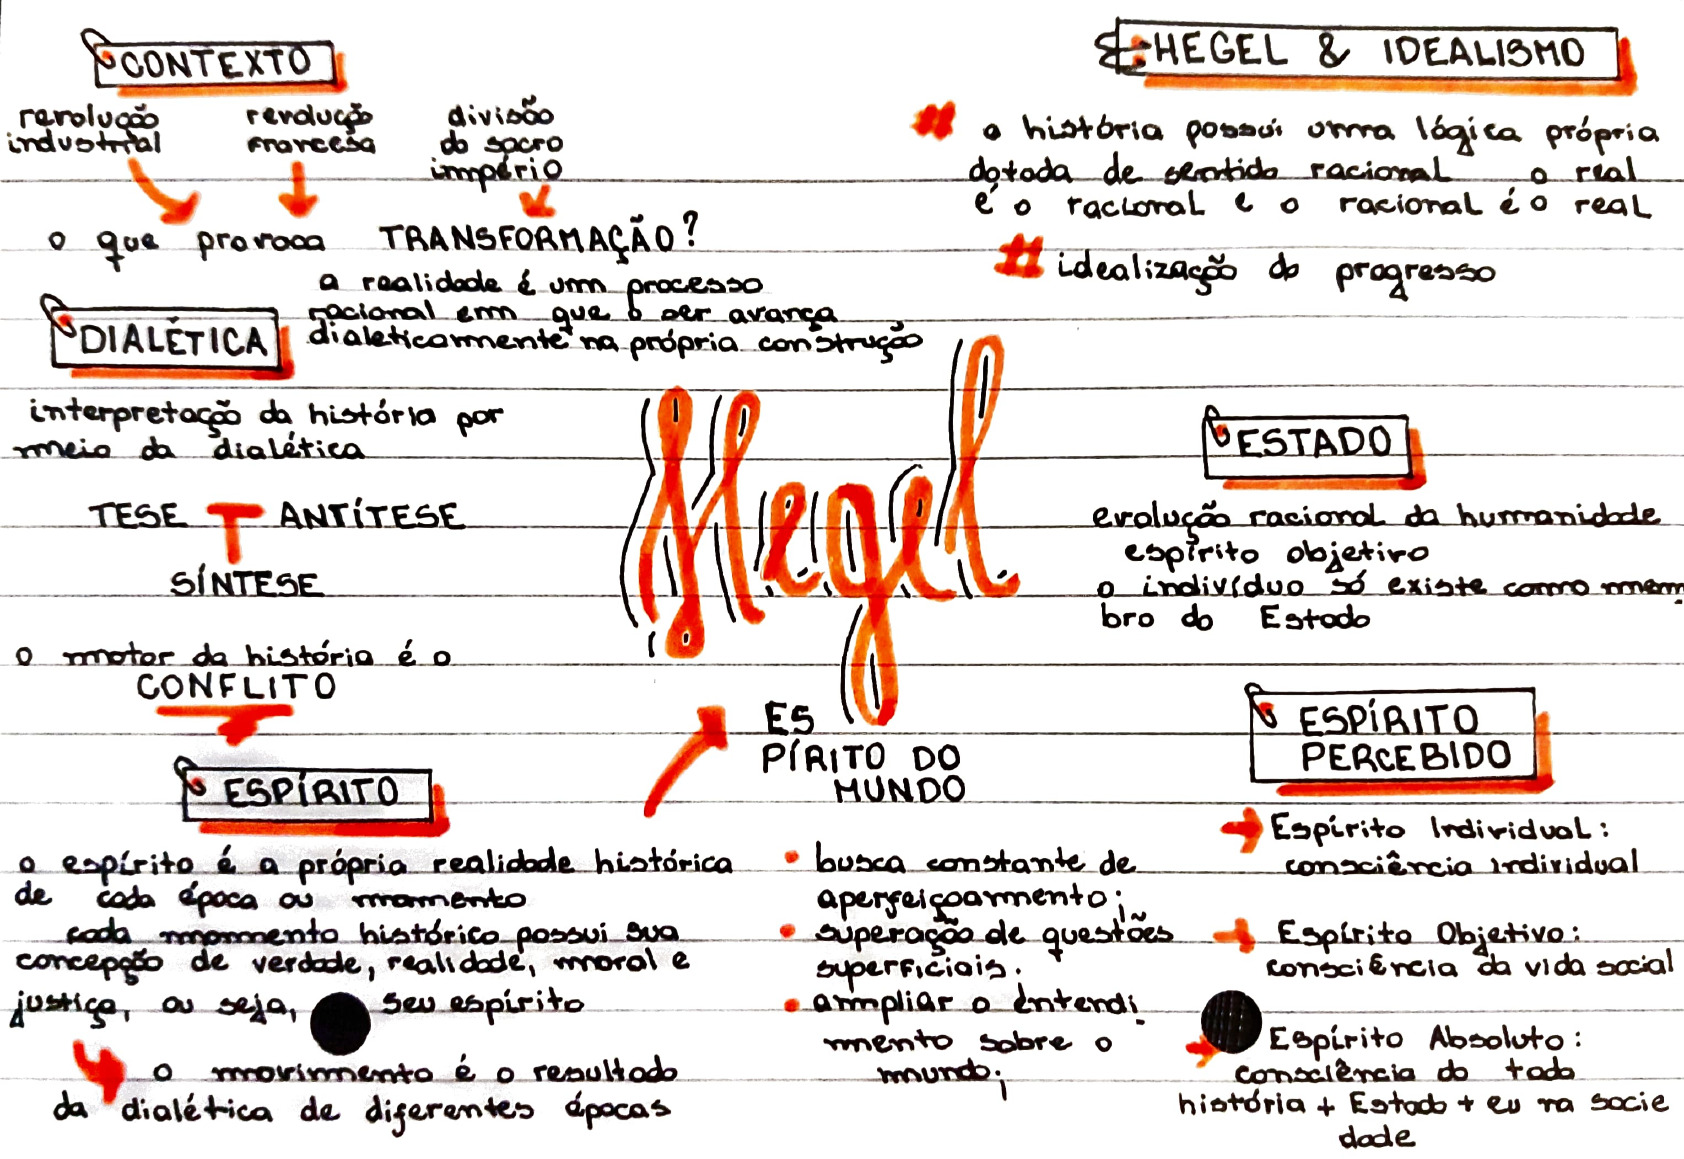 CONTEXTO
revolução industrial
revolução francesa
divisão do sacro império
o que provoca TRANSFORMAÇÃO?
a realidade é um processo
racional em que o ser avança
dialeticamente na própria construção
DIALÉTICA
interpretação da história por
meio da dialética
TESE ANTÍTESE
SÍNTESE
o motor da história é o
CONFLITO
ESPÍRITO
o espírito é a própria realidade histórica
de cada época ou momento
cada momento histórico possui sua
concepção de verdade, realidade, moral e
justiça, ou seja, seu espírito
o movimento é o resultado
da dialética de diferentes épocas
Hegel
ES
PÍRITO DO
MUNDO
• busca constante de
aperfeiçoamento;
• superação de questões
superficiais.
• ampliar o entendi
mento sobre o
mundo;
HEGEL & IDEALISMO
# a história possui uma lógica própria
dotada de sentido racional o real
é o racional e o racional é o real
# idealização do progresso
ESTADO
evolução racional da humanidade
espírito objetivo
o indivíduo só existe como mem
bro do Estado
ESPÍRITO
PERCEBIDO
Espírito Individual:
consciência individual
Espírito Objetivo:
consciência da vida social
Espírito Absoluto:
consciência do todo
história + Estado + eu na socie
dade